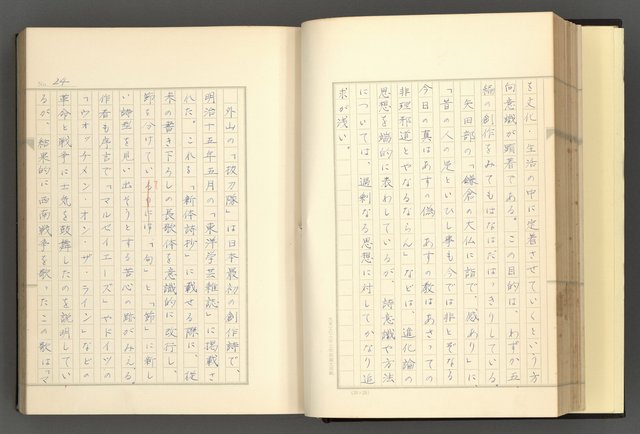 を文化・生活の中に定着させていくという方
向意識が顕著である。この目的は、わずか五
編の創作をみてもはなはだはっきりしている。
矢田部の「鎌倉の大仏に詣で、感あり」に、
「昔の人の是といひし事も今では非となる
今日の真はあすの偽 あすの教はあさっての
非理邪道とやなるならん」などは、進化論の
思想を端的に表わしているが、詩意識や方法
については、過剰なる思想に対してかなり追
求が浅い。
(20×20)
No. 24
外山の「抜刀隊」は日本最初の創作詩で、
明治十五年五月の「東洋学芸雑誌」に掲載さ
れた。これを「新体詩抄」に載せる際に、従
来の書き下ろしの長歌体を意識的に改行し、
節を分けている。「句」と「節」に新し
い詩型を見い出そうとする苦心の跡がみえる。
作者も序言で「マルセイエーズ」やドイツの
「ウオッチメン・オン・ザ・ライン」などの
革命と戦争に士気を鼓舞したのを説明してい
るが、結果的に西南戦争を歌ったこの歌は「マ